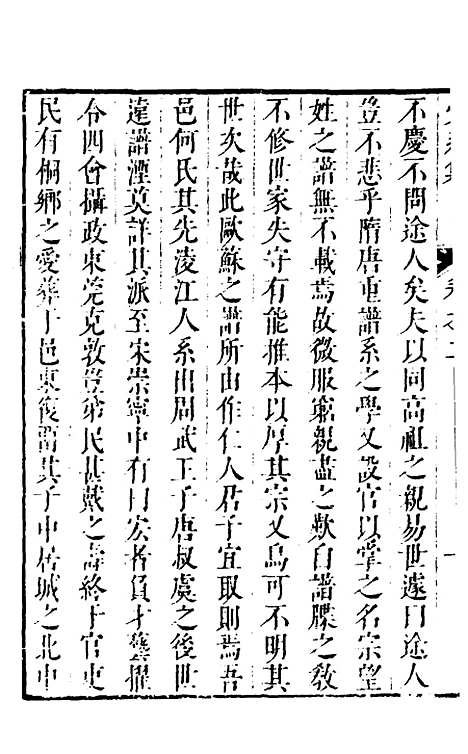 不慶不問途人矣夫以同高祖之親易世遽曰途人
豈不悲乎隋唐重譜系之學又設官以掌之名宗望
姓之譜無不載焉故微服窮親盡之歎自譜牒之教
不修世家失守有能推本以厚其宗又烏可不明其
世次哉此歐蘇之譜所由作仁人君子宜取則焉吾
邑何氏其先淩江人系出周武王子唐叔虞之後世
遠譜湮莫詳其派至宋崇寧中有曰宏者負才藝擢
令四會攝政東莞克敦豈第民甚戴之壽終于官吏
民有桐鄉之愛葬于邑東復留其子中居城之北中